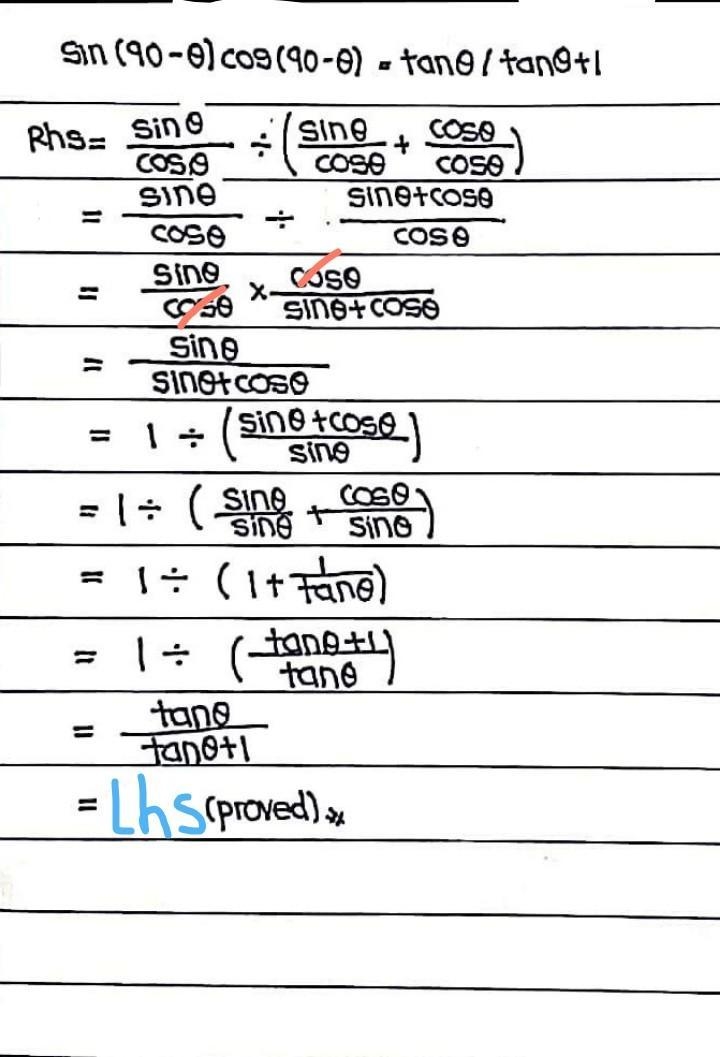 sin(90-θ)cos(90-θ) = tanθ / tanθ+1
Rhs= sinθ/cosθ ÷ (sinθ/cosθ + cosθ/cosθ)
= sinθ/cosθ ÷ sinθ+cosθ/cosθ
= sinθ/cosθ × cosθ/sinθ+cosθ
= sinθ/sinθ+cosθ
= 1 ÷ (sinθ+cosθ/sinθ)
= 1 ÷ (sinθ/sinθ + cosθ/sinθ)
= 1 ÷ (1+1/tanθ)
= 1 ÷ (tanθ+1/tanθ)
= tanθ/tanθ+1
= Lhs (proved)